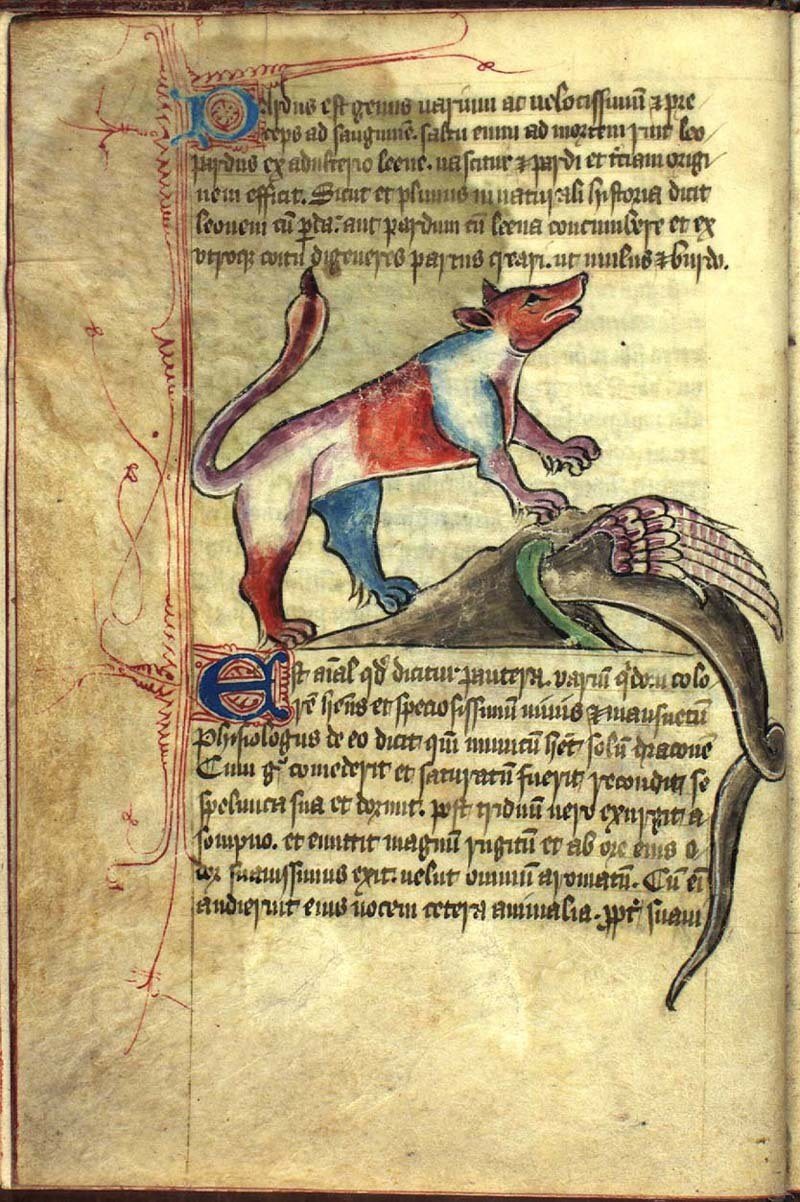 Pardus est genus uarium ac uelocissimū ⁊ pre
ceps ad sanguinē. saltu enim ad mortem ruit leo
pardus ex adulterio leene. nascitur ⁊ pardi et t̄ciam origi
nem efficit. Sicut et plinius in naturali historia dicit
leonem cū pda. aut pardum cū leena concumbere et ex
utroque coitu degeneres partus creari. ut mulus ⁊ burdo.
Est aīal qd̄ dicitur pantera. variū qdē colo
rē hēns et speciosissimum nimis ⁊ mansuetū
Phisiologus de eo dicit qm̄ inimicū hēt solū draconē
Cum g° comederit et saturatū fuerit recondit se
spelunca sua et dormit. post triduū uero exurgit a
sompno. et emittit magnū rugitū et ab ore eius o
dor suauissimus exit. uelut omniū aromatū. Cū eī
audierint eius uocem cetera animalia. ppt̄ suaui